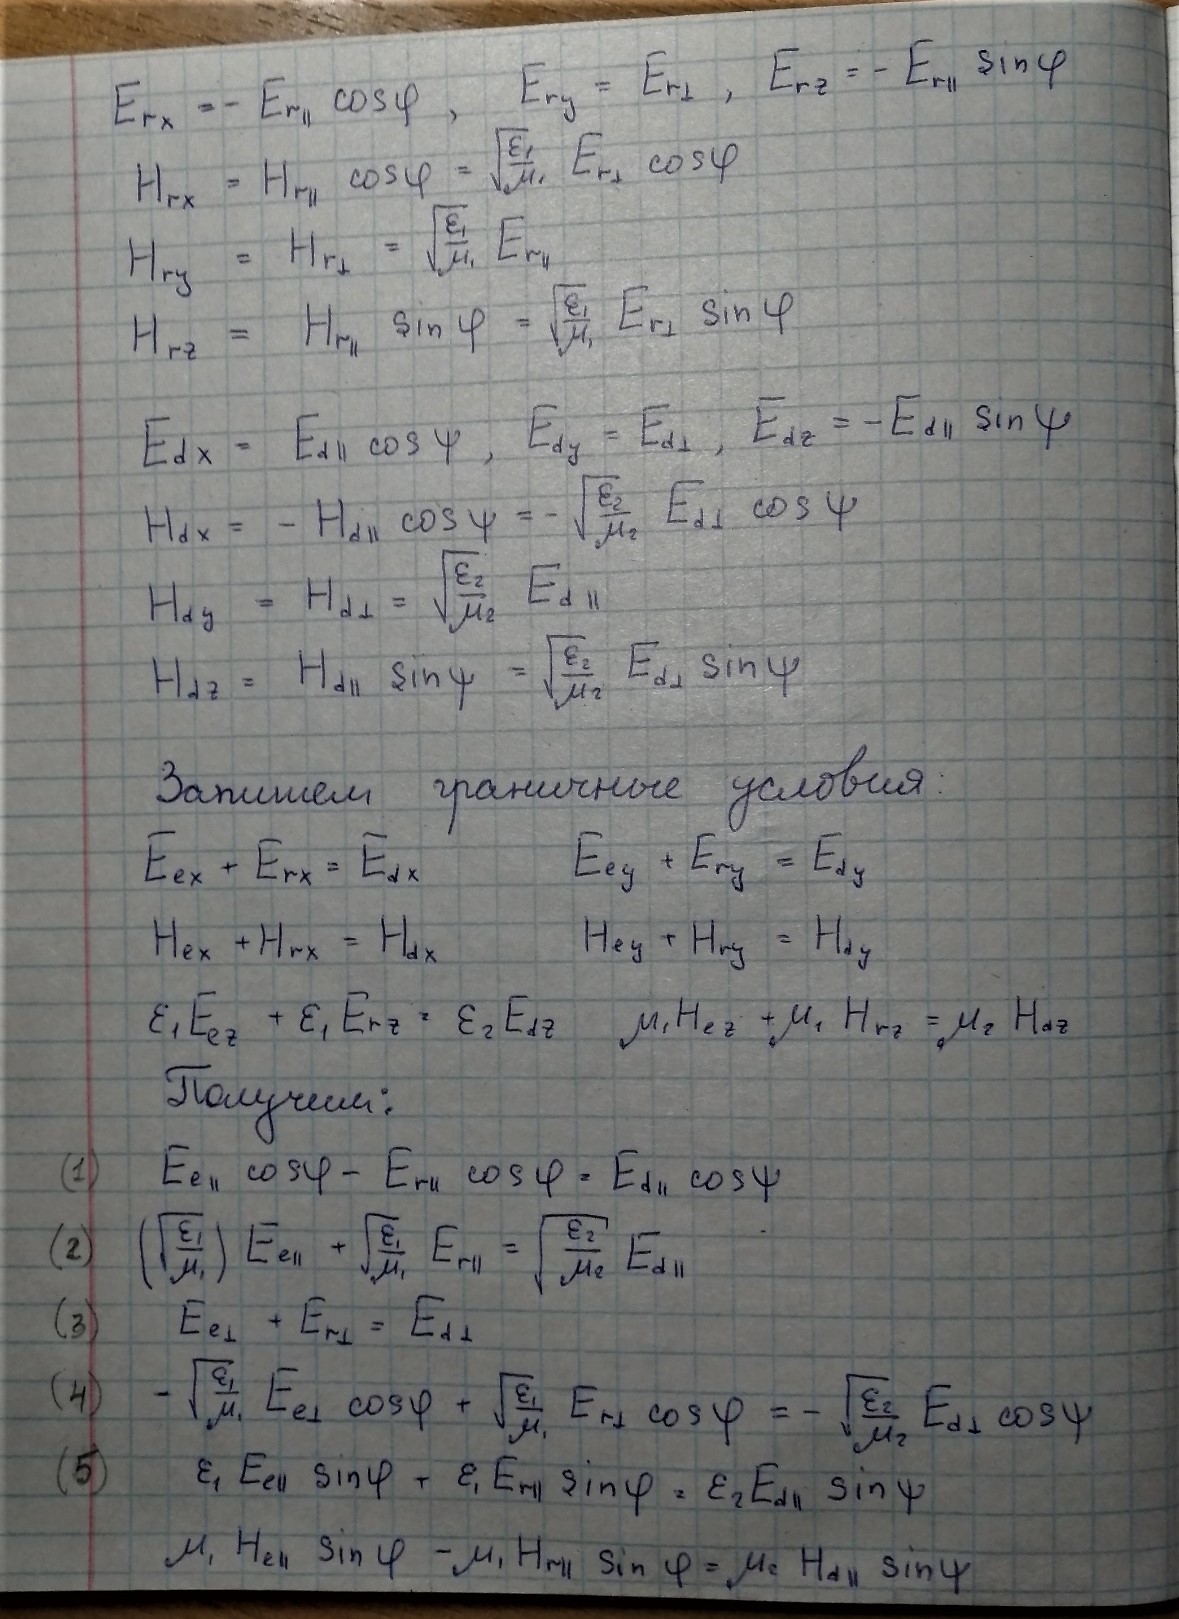 E_rx = - E_r∥ cosφ , E_ry = E_r⊥ , E_rz = - E_r∥ sinφ
H_rx = H_r∥ cosφ = √(ε₁/μ₁) E_r⊥ cosφ
H_ry = H_r⊥ = √(ε₁/μ₁) E_r∥
H_rz = H_r∥ sinφ = √(ε₁/μ₁) E_r⊥ sinφ
E_dx = E_d∥ cosψ , E_dy = E_d⊥ , E_dz = - E_d∥ sinψ
H_dx = - H_d∥ cosψ = - √(ε₂/μ₂) E_d⊥ cosψ
H_dy = H_d⊥ = √(ε₂/μ₂) E_d∥
H_dz = H_d∥ sinψ = √(ε₂/μ₂) E_d⊥ sinψ
Запишем граничные условия:
E_ex + E_rx = E_dx E_ey + E_ry = E_dy
H_ex + H_rx = H_dx H_ey + H_ry = H_dy
ε₁E_ez + ε₁E_rz = ε₂E_dz μ₁H_ez + μ₁ H_rz = μ₂ H_dz
Получим:
(1) E_e∥ cosφ - E_r∥ cosφ = E_d∥ cosψ
(2) (√(ε₁/μ₁)) E_e∥ + √(ε₁/μ₁) E_r∥ = √(ε₂/μ₂) E_d∥
(3) E_e⊥ + E_r⊥ = E_d⊥
(4) - √(ε₁/μ₁) E_e⊥ cosφ + √(ε₁/μ₁) E_r⊥ cosφ = - √(ε₂/μ₂) E_d⊥ cosψ
(5) ε₁ E_e∥ sinφ + ε₁E_r∥ sinφ = ε₂E_d∥ sinψ
μ₁ H_e∥ sinφ - μ₁H_r∥ sinφ = μ₂ H_d∥ sinψ